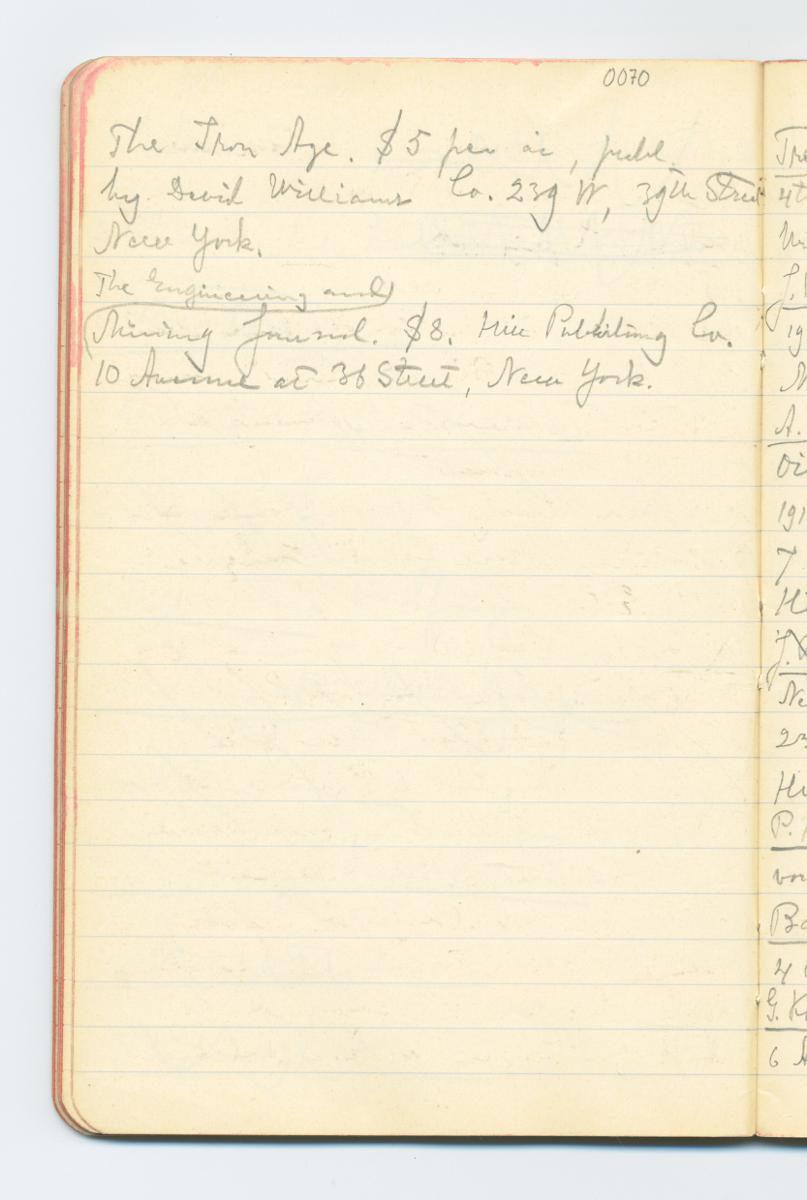 0070
The Iron Age. $5 per år, publ.
by David Williams Co. 239 W, 39th Street
New York.
The Engineering and
Mining Journal. $8. Hill Publishing Co.
10 Avenue at 36 Street, New York.
Tre
4t
J.
19
N
A.
Di
191
7
Hi
J.
Ne
23
Hi
P.
vor
Bo
4
G. K
6 A